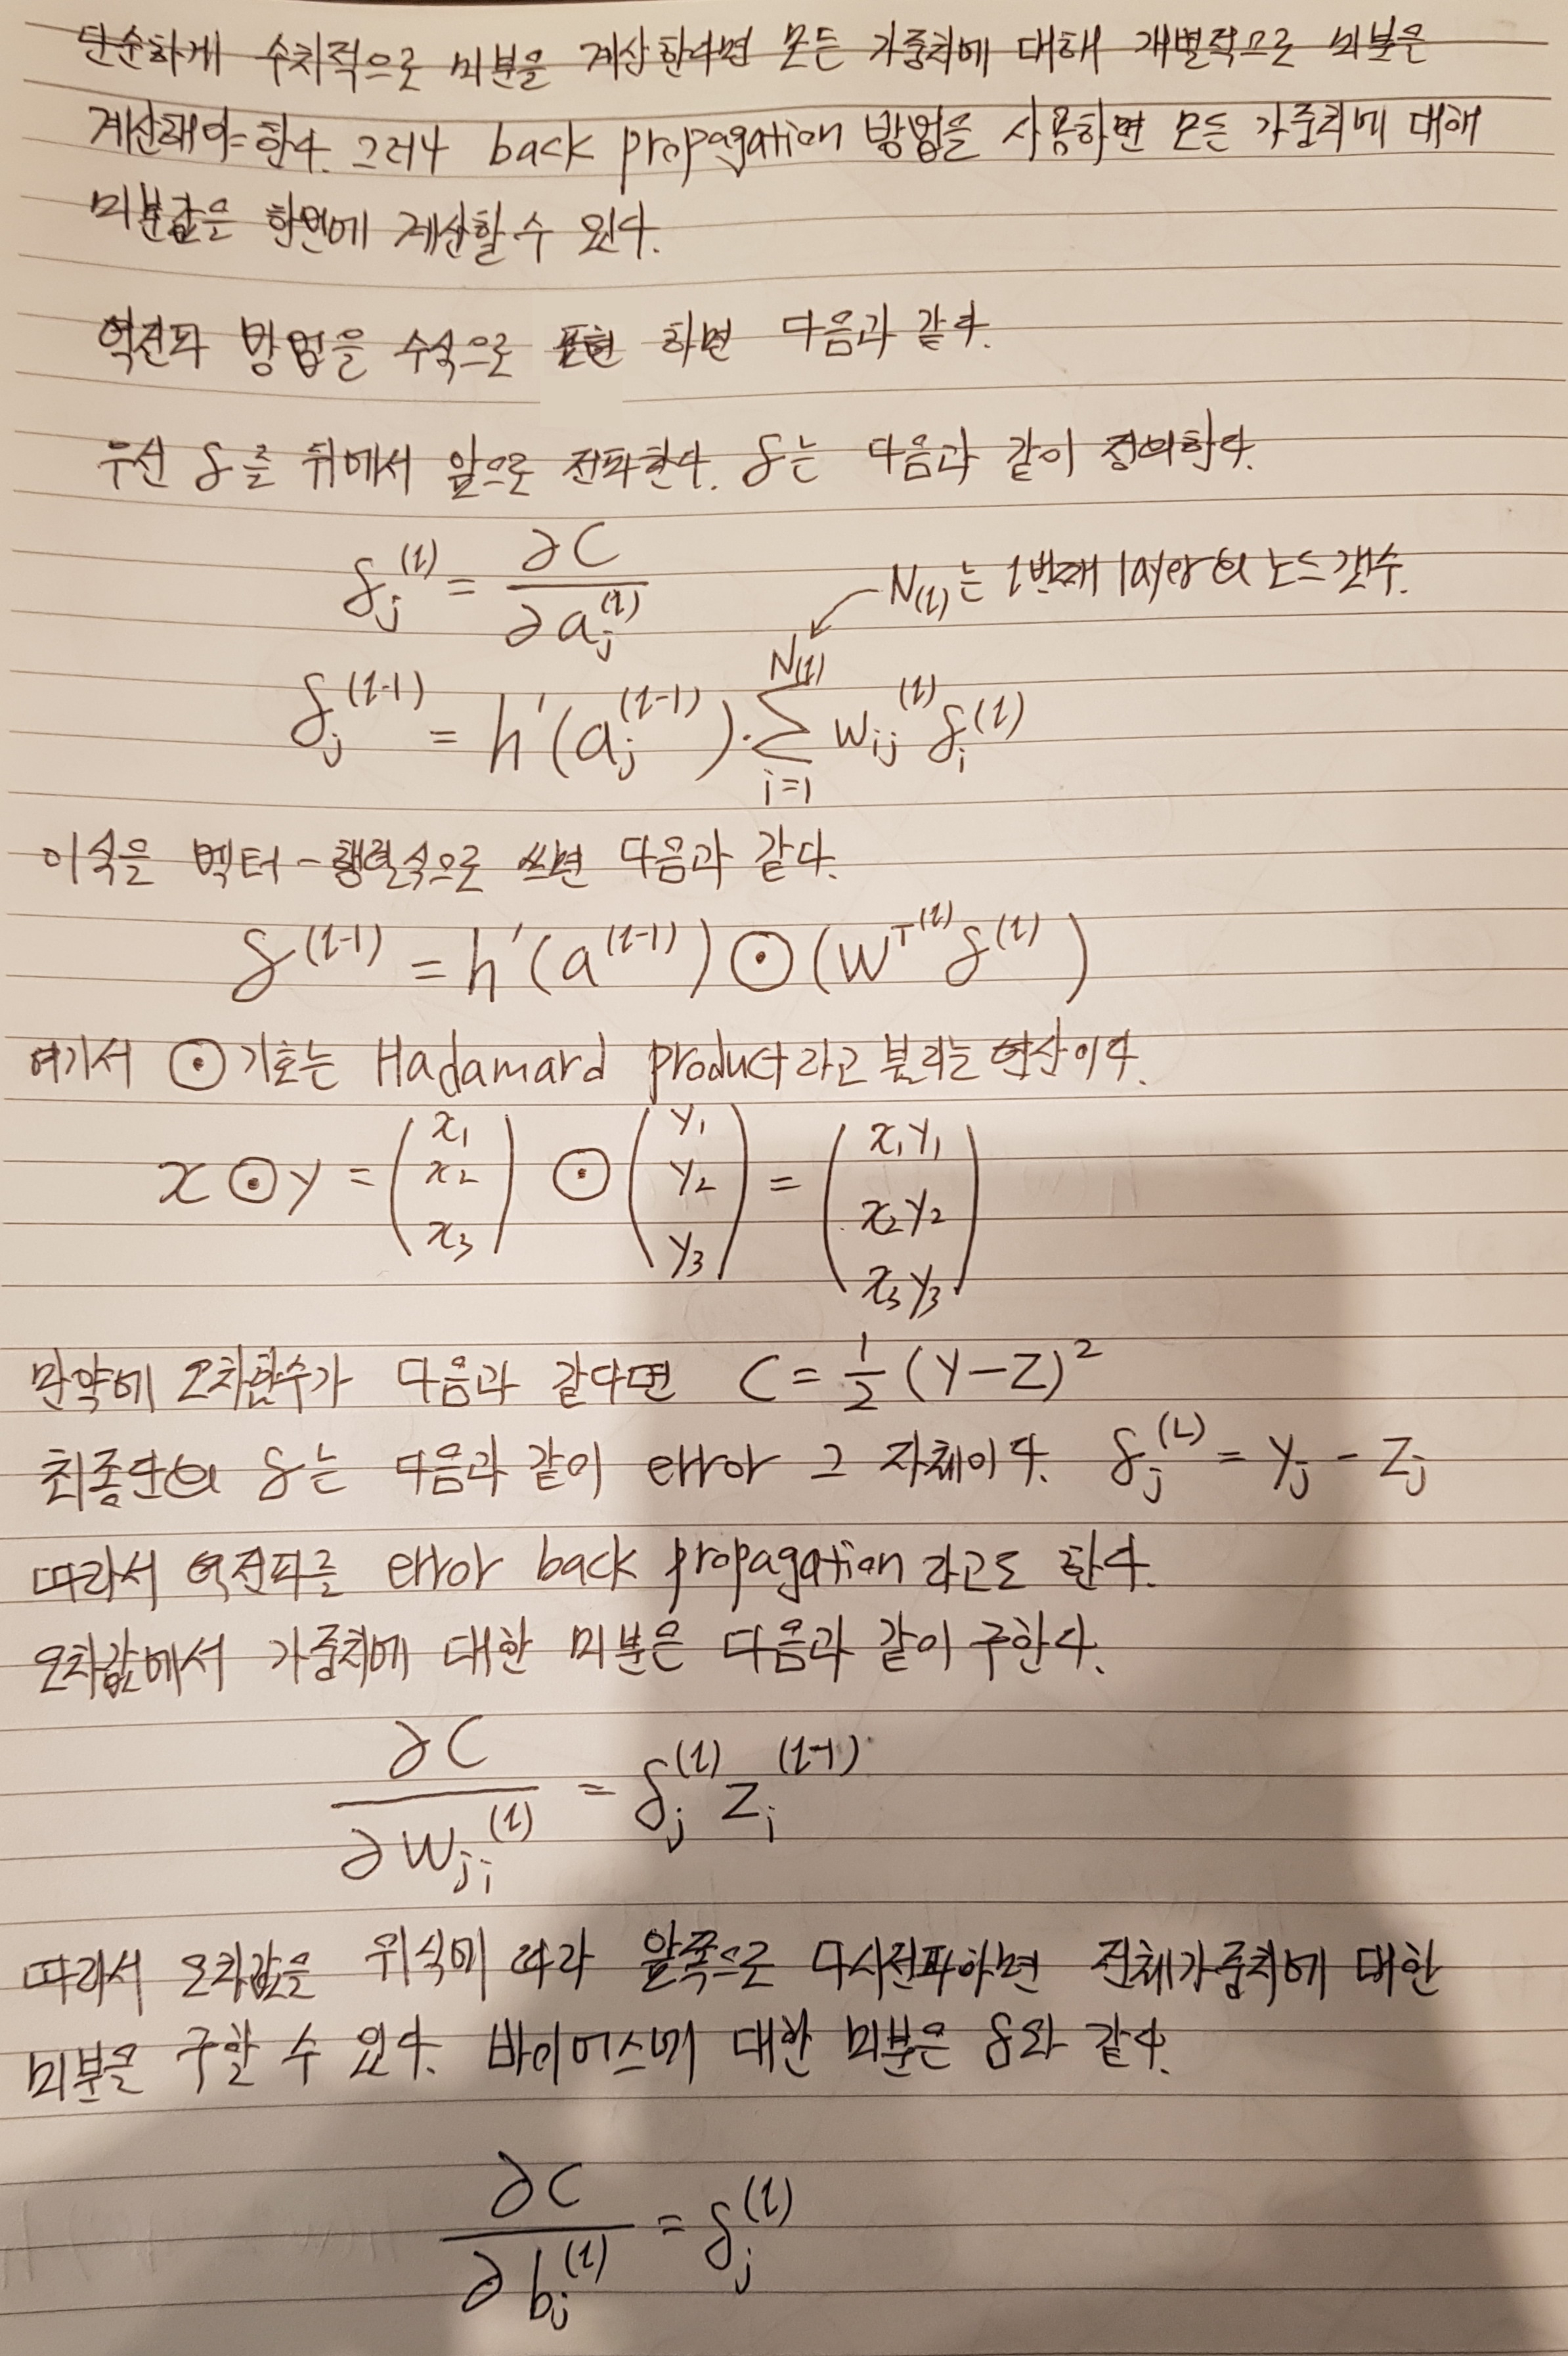 단순하게 수치적으로 미분을 계산한다면 모든 가중치에 대해 개별적으로 미분을
계산해야 한다. 그러나 back propagation 방법을 사용하면 모든 가중치에 대해
미분값을 한번에 계산할 수 있다.
역전파 방법을 수식으로 표현 하면 다음과 같다.
우선 δ를 뒤에서 앞으로 전파한다. δ는 다음과 같이 정의한다.
δ_j^(l) = ∂C / ∂a_j^(l)
N_(l)는 l번째 layer의 노드 갯수.
δ_j^(l-1) = h'(a_j^(l-1)) · Σ_{i=1}^{N_(l)} w_ij^(l) δ_i^(l)
이식을 벡터-행렬식으로 쓰면 다음과 같다.
δ^(l-1) = h'(a^(l-1)) ⊙ (W^T(l) δ^(l))
여기서 ⊙ 기호는 Hadamard product라고 불리는 연산이다.
x ⊙ y = (x₁ x₂ x₃) ⊙ (y₁ y₂ y₃) = (x₁y₁ x₂y₂ x₃y₃)
만약에 오차함수가 다음과 같다면 C = 1/2 (Y-Z)²
최종단의 δ는 다음과 같이 error 그 자체이다. δ_j^(L) = y_j - z_j
따라서 역전파를 error back propagation 라고도 한다.
오차값에서 가중치에 대한 미분은 다음과 같이 구한다.
∂C / ∂w_ji^(l) = δ_j^(l) z_i^(l-1)
따라서 오차값을 위식에 따라 앞쪽으로 다시전파하면 전체가중치에 대한
미분을 구할 수 있다. 바이어스에 대한 미분은 δ와 같다.
∂C / ∂b_j^(l) = δ_j^(l)